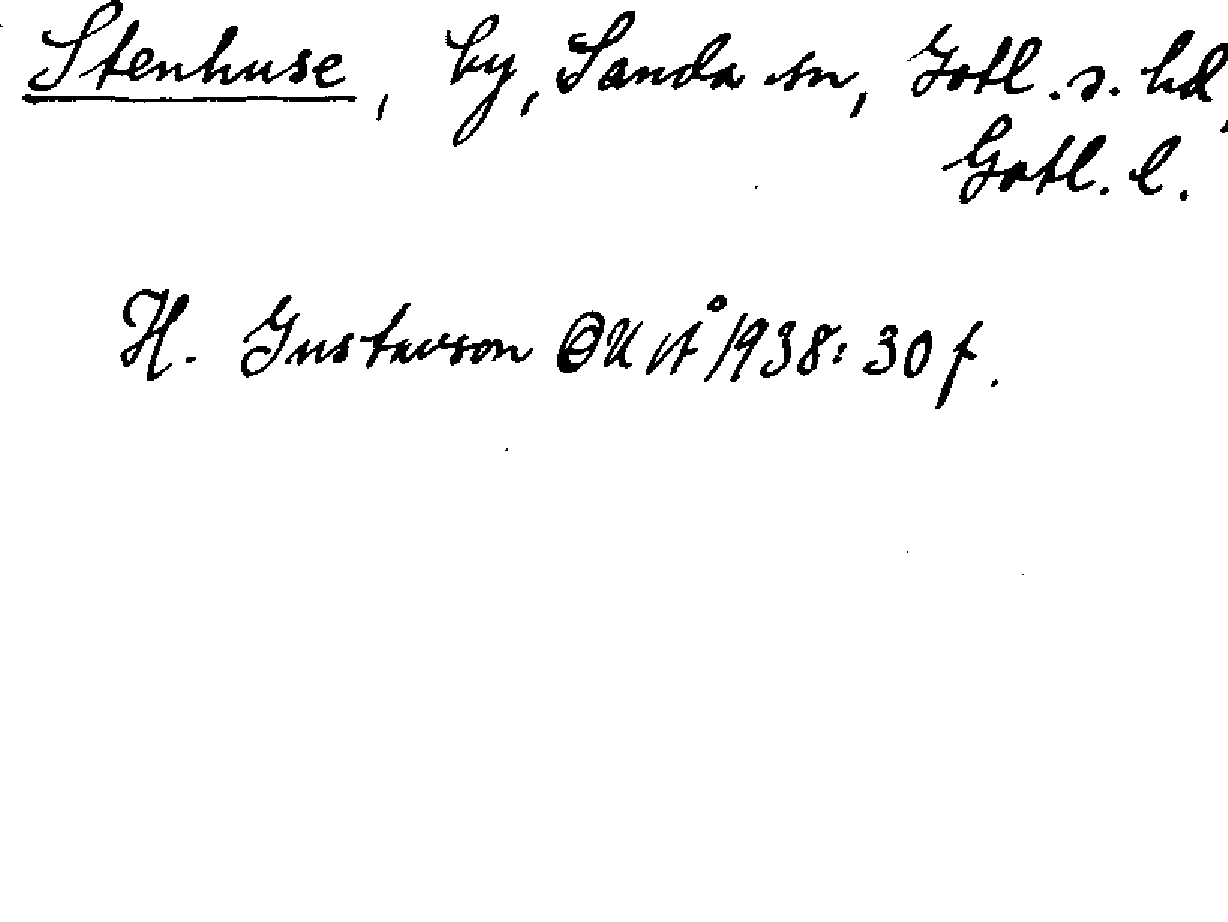 Stenhuse, by, Sanda sn, Gotl. s. hd,
Gotl. l.
H. Gustavson 1938: 30 f.